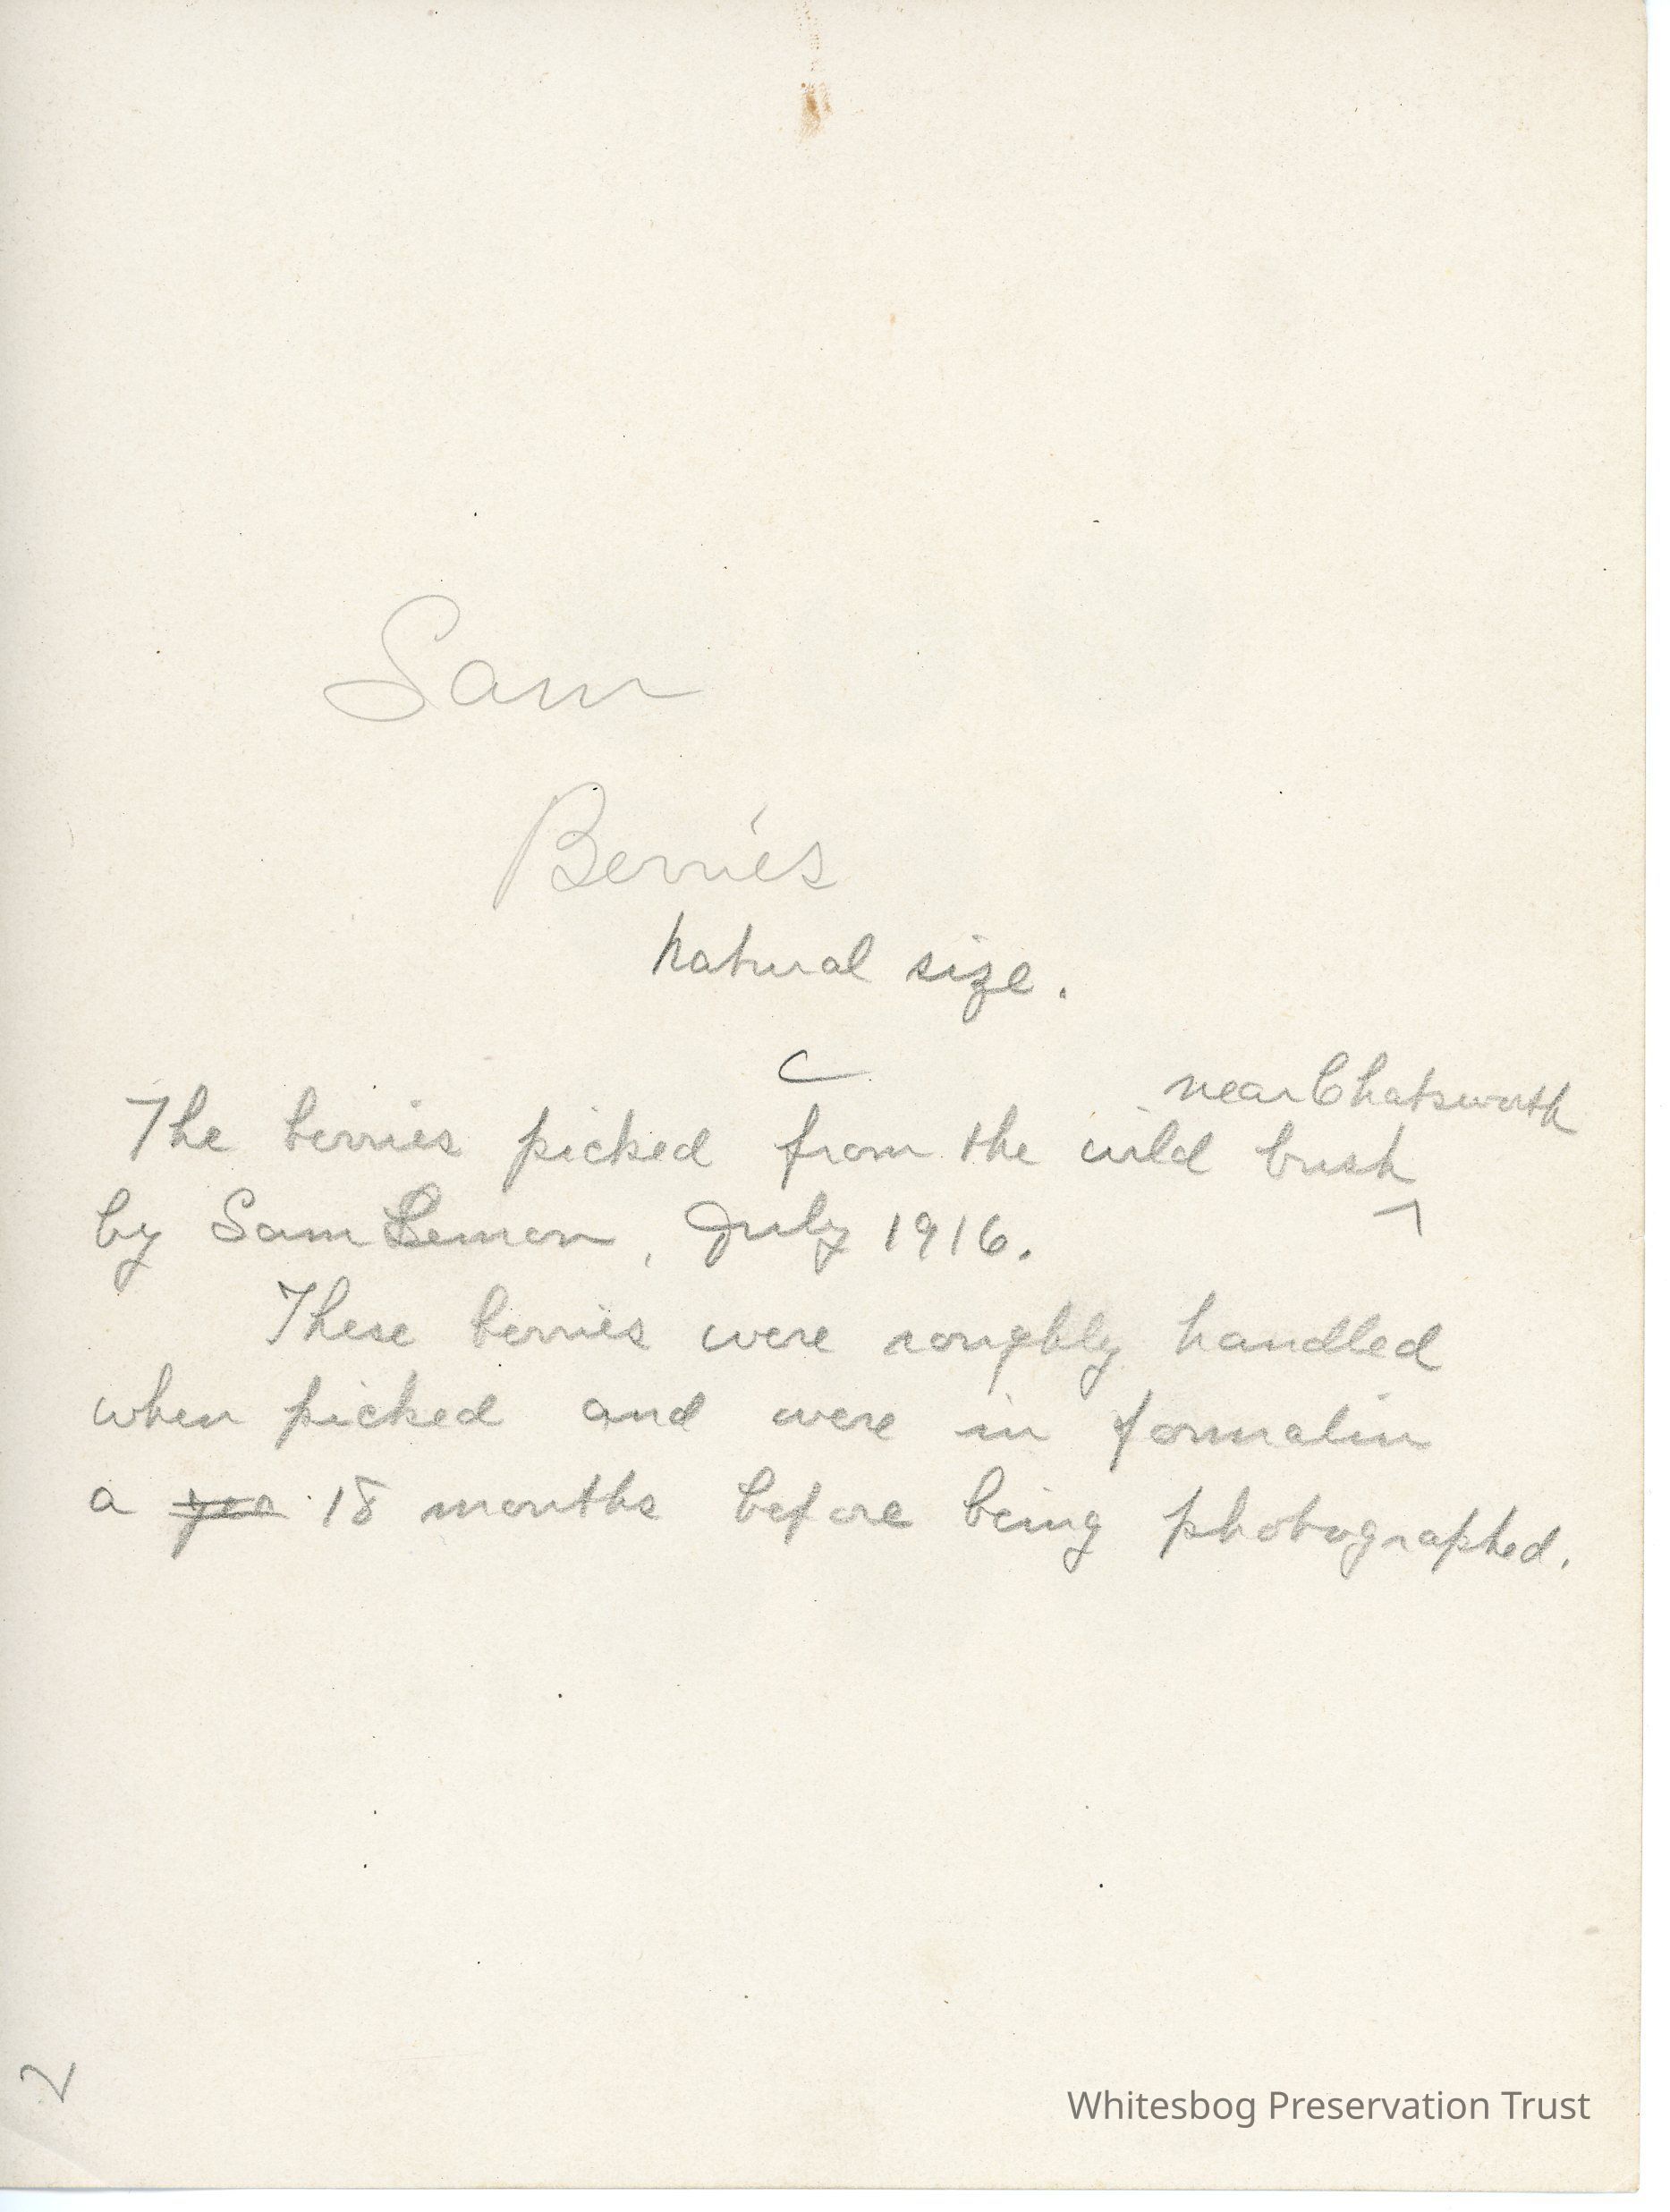 Sam
Berries
natural size.
near Chatsworth
The berries picked from the wild bush
by Sam Lemon, July 1916.
These berries were roughly handled
when picked and were in formalin
a yea 18 months before being photographed.
Whitesbog Preservation Trust